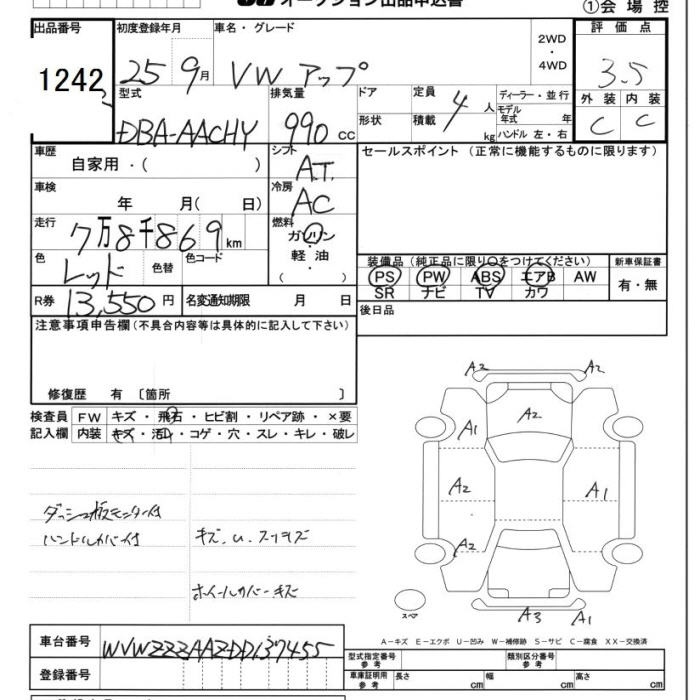 オークション出品申込書
①会場控
出品番号 初度登録年月 車名・グレード 2WD・4WD 評価点
1242 25 9月 VW アップ 3.5
型式 排気量 ドア 定員 4人 ディーラー・並行 外装 内装
形状 積載 kg モデル年式 年 C C
DBA-AACHY 990cc ハンドル 左・右
車歴 自家用・( ) シフト A.T. セールスポイント (正常に機能するものに限ります)
車検 年 月( 日) 冷房 AC
走行 7万8千869km 燃料 ガソリン・軽油・( )
色 レッド 色替 色コード
装備品 (純正品に限り○をつけてください) 新車保証書
PS PW ABS エアB AW 有・無
SR ナビ TV カワ
R券 13,550円 名変通知期限 月 日
後日品
注意事項申告欄(不具合内容等は具体的に記入して下さい)
修復歴 有 〔箇所 〕
検査員 FW キズ・飛石・ヒビ割・リペア跡・×要
記入欄 内装 キズ・汚レ・コゲ・穴・スレ・キレ・破レ
A2 A2
A2
A1
A2 A1
A2
A3 A1
ダッシュ板モニター付
ハンドルカバー付 キズ、U、スリキズ
ホイールカバーキズ
スペア
A-キズ E-エクボ U-凹み W-補修跡 S-サビ C-腐食 XX-交換済
車台番号 WVWZZZAAZDD137455
登録番号
型式指定番号 参考 類別区分番号 参考
車庫証明用 参考 長さ cm 幅 cm 高さ cm